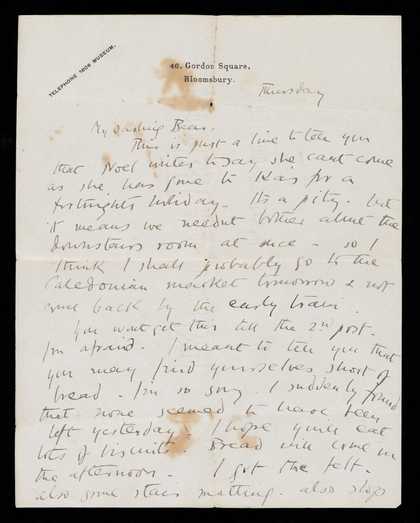 46, Gordon Square,
Bloomsbury.
TELEPHONE 1808 MUSEUM.
Thursday
My Bear.
This is just a line to tell you
that Noel writes to say she cant come
as she has gone to for a
fortnights holiday. Its a pity. but
it means we neednt bother about the
downstairs room at once – so I
think I shall probably go to the
Caledonian market tomorrow & not
come back by the early train.
You wont get this till the 2nd post.
Im afraid. I meant to tell you that
you may find yourselves short of
bread. Im so sorry I suddenly found
that none seemed to have been
left yesterday. I hope youll eat
lots of biscuits. Bread will come in
the afternoon. I got the felt.
also some stair matting. also